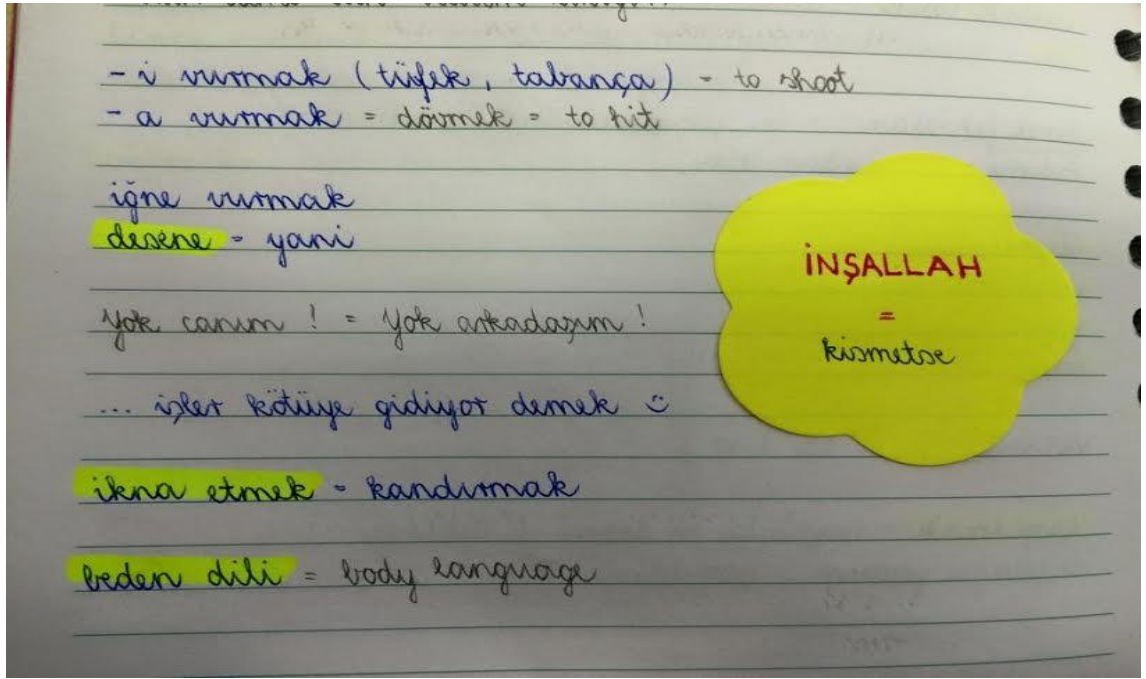 - i vurmak (tüfek, tabança) - to shoot
- a vurmak = dövmek = to hit
iğne vurmak
desene - yani
yok canım ! = yok arkadaşım !
... işler kötüye gidiyor demek :)
ikna etmek - kandırmak
beden dili = body language
İNŞALLAH
=
kısmetse